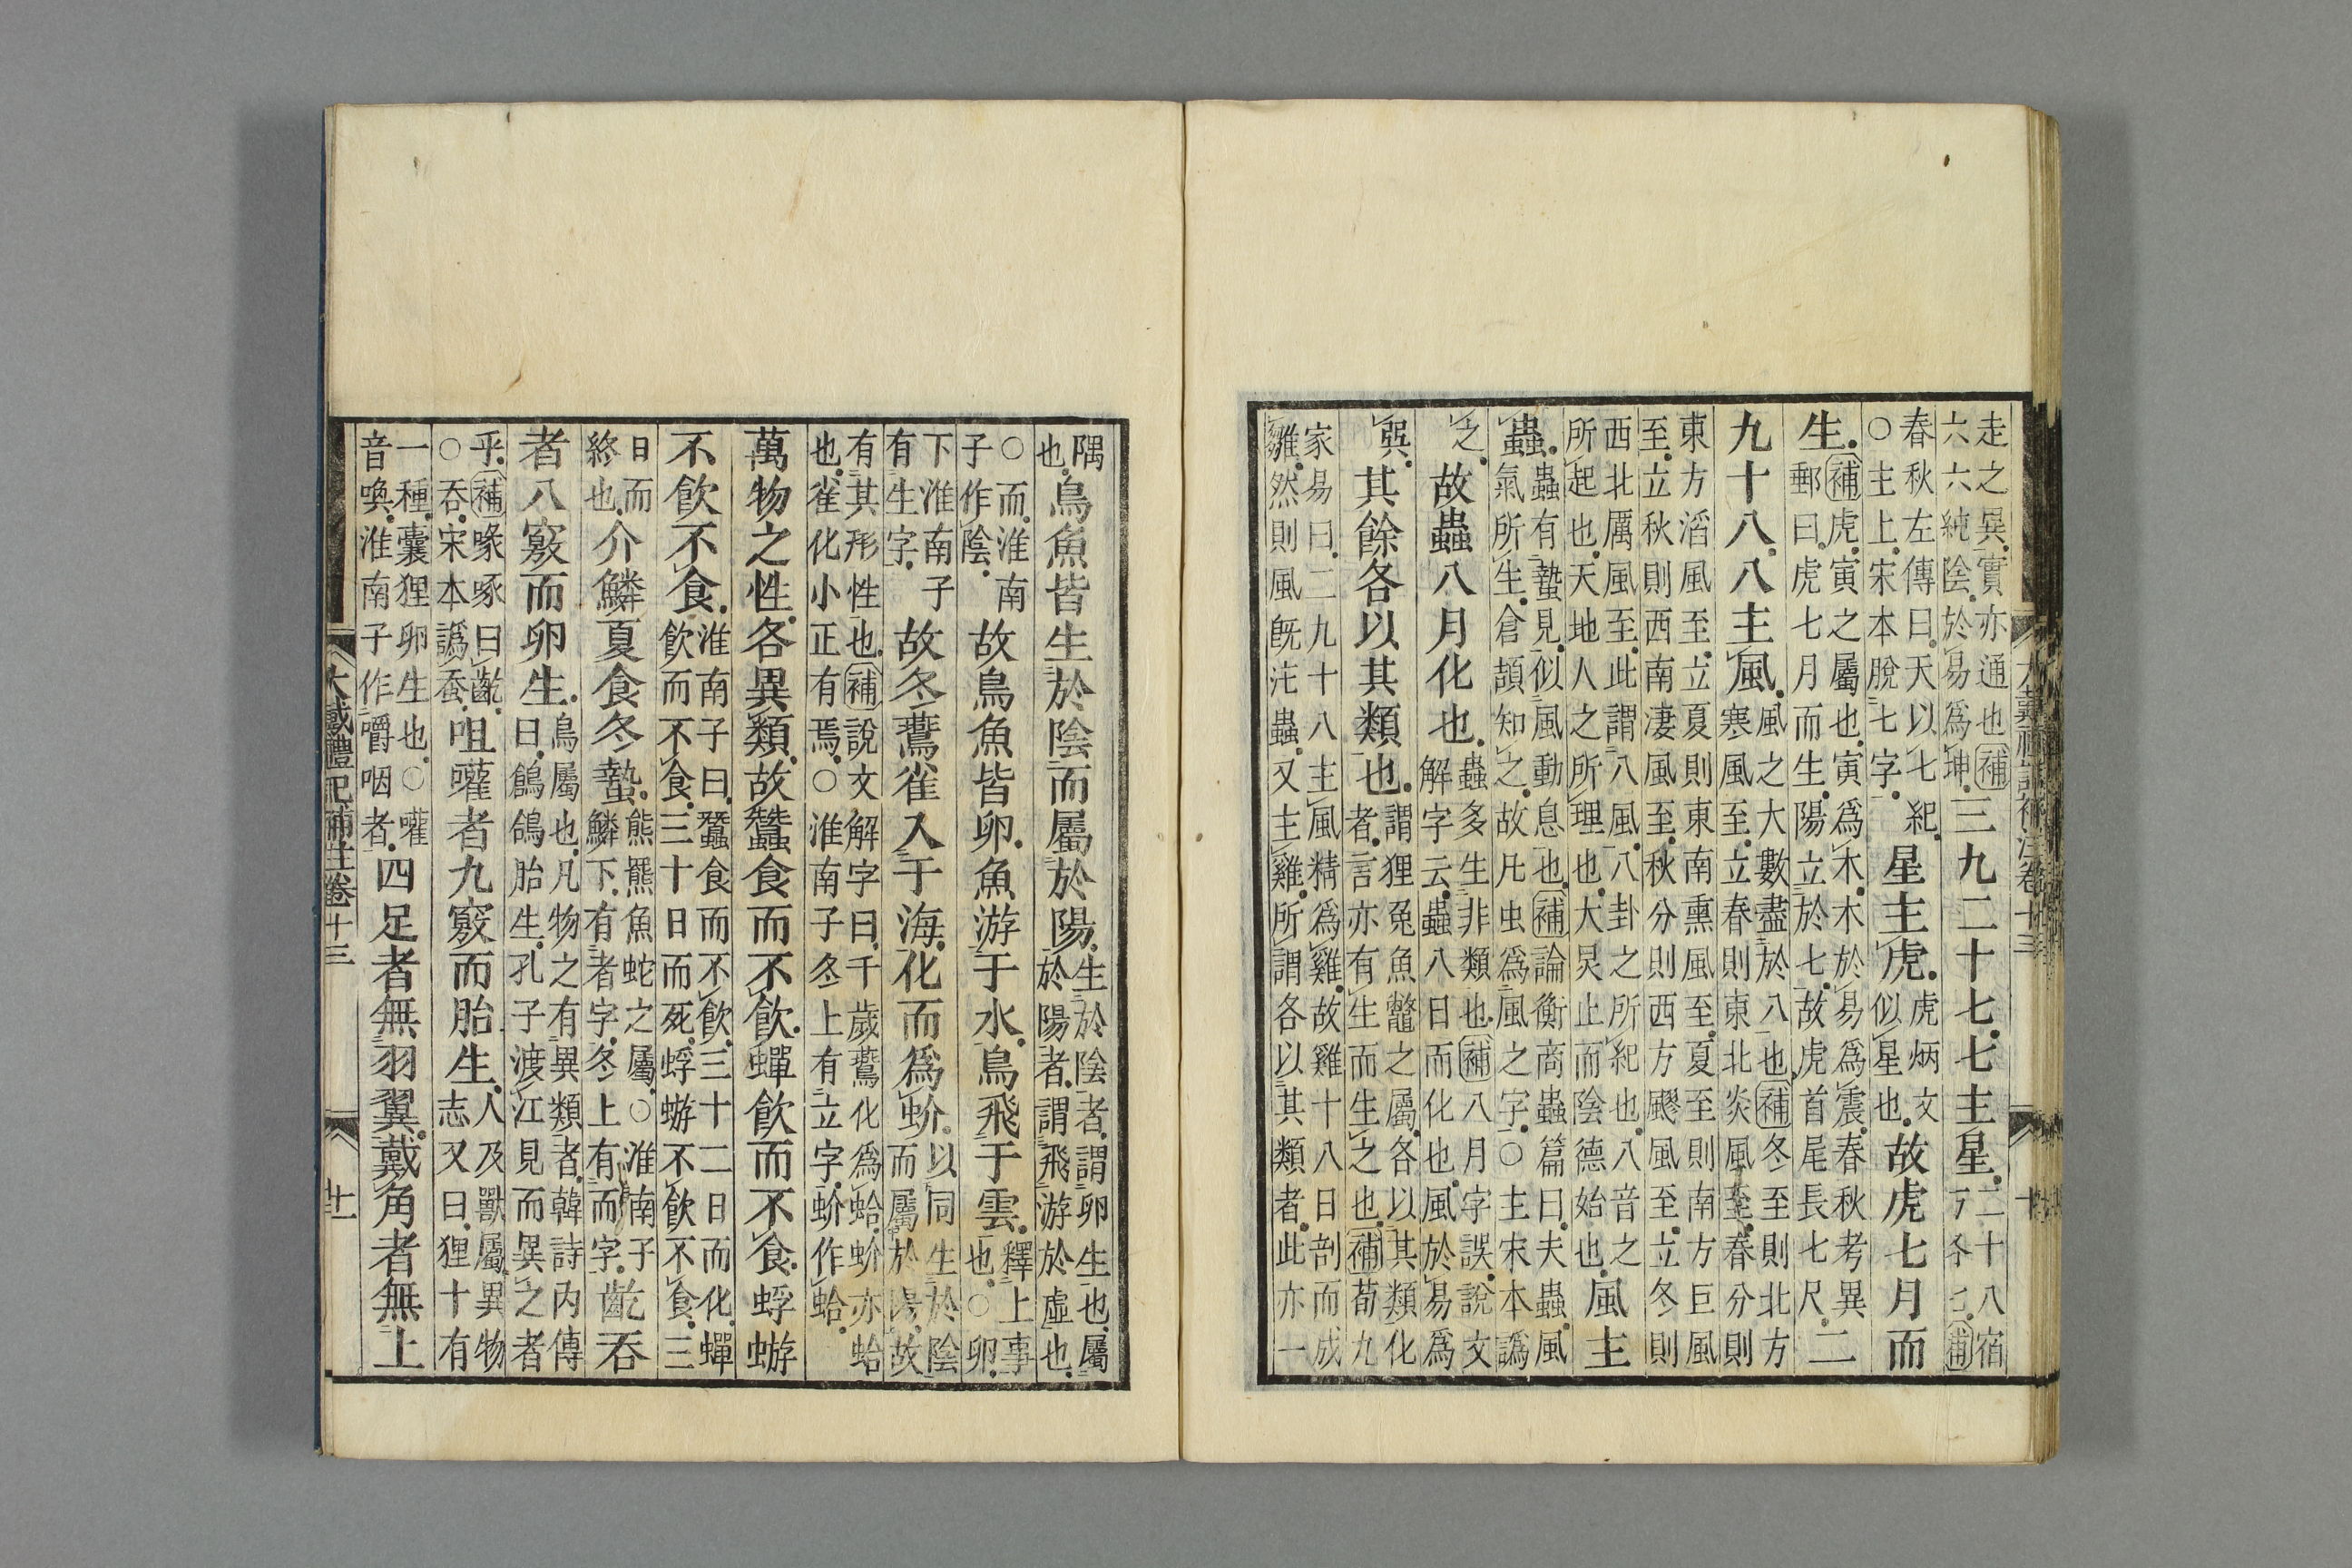 大戴禮記補注卷十三　十
走之異實亦通也補
六六純陰於易爲坤
三九二十七七主星
二十八宿
方各七補
春秋左傳曰天以七紀
○主上宋本脫七字
星主虎
虎炳文
似星也
故虎七月而
生
補虎寅之屬也寅爲木木於易爲震春秋考異
郵曰虎七月而生陽立於七故虎首尾長七尺
二
九十八八主風
風之大數盡於八也補冬至則北方
寒風至立春則東北炎風至春分則
東方滔風至立夏則東南熏風至夏至則南方巨風
至立秋則西南淒風至秋分則西方飂風至立冬則
西北厲風至此謂八風八卦之所紀也八音之
所起也天地人之所理也大炅止而陰德始也
風主
蟲
蟲有蟄見似風動息也補論衡商蟲篇曰夫蟲風
氣所生倉頡知之故凡虫爲風之字○主宋本譌
之
故蟲八月化也
蟲多生非類也補八月字誤說文
解字云蟲八日而化也風於易爲
巽
其餘各以其類也
謂狸兔魚鼈之屬各以其類化
者言亦有生而生之也補荀九
家易曰二九十八主風精爲雞故雞十八日剖而成
雛然則風旣蟲又主雞所謂各以其類者此亦一
隅
也
鳥魚皆生於陰而屬於陽
生於陰者謂卵生也屬
於陽者謂飛游於虛也
○而淮南
子作陰
故鳥魚皆卵魚游于水鳥飛于雲
釋上事
也○卵
下淮南子
有生字
故冬鷰雀入于海化而爲蚧
以同生於陰
而屬於陽故
有其形性也補說文解字曰千歲鷰化爲蛤蚧亦蛤
也雀化小正有焉○淮南子冬上有立字蚧作蛤
萬物之性各異類故蠶食而不飲蟬飲而不食蜉蝣
不飲不食
淮南子曰蠶食而不飲三十二日而化蟬
飲而不食三十日而死蜉蝣不飲不食三
日而
終也
介鱗夏食冬蟄
熊羆魚蛇之屬○淮南子
鱗下有者字冬上有而字
齕吞
者八竅而卵生
鳥屬也凡物之有異類者韓詩内傳
曰鶬鴰胎生孔子渡江見而異之者
乎補喙啄曰齕
○吞宋本譌蚕
咀嚾者九竅而胎生
人及獸屬異物
志又曰狸十有
一種囊狸卵生也○嚾
音喚淮南子作嚼咽者
四足者無羽翼戴角者無上
大戴禮記補注卷十三　十一